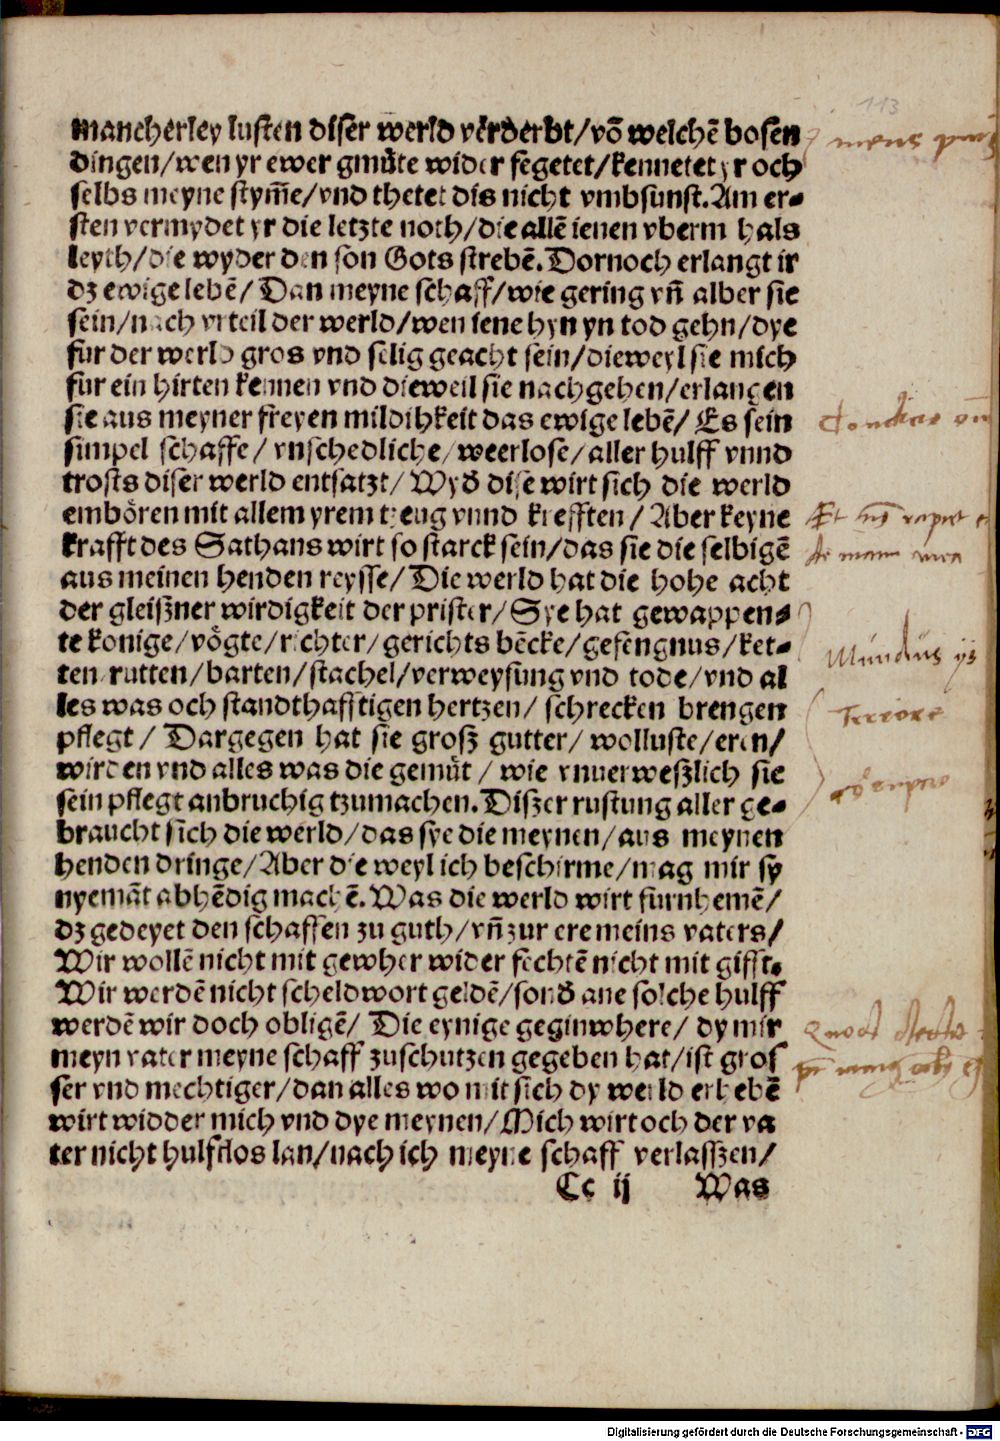 113
mancherley lusten diser werld verderbt/vō welchē bosen
dingen/wen yr ewer gmůte wider fegetet/kennetet yr och
selbs meyne stym̄e/vnd thetet dis nicht vmbsunst. Am er⸗
sten vermydet yr die letzte noth/die allē ienen vberm hals
leyth/die wyder den son Gots strebē. Dornoch erlangt ir
dz ewige lebē/ Dan meyne schaff/wie gering vn̄ alber sie
sein/nach vrteil der werld/wen iene hyn yn tod gehn/dye
fur der werld gros vnd selig geacht sein/dieweyl sie mich
fur ein hirten kennen vnd dieweil sie nachgehen/erlangen
sie aus meyner freyen mildihkeit das ewige lebē/ Es sein
simpel schaffe/ vnschedliche/weerlose/aller hulff vnnd
trosts diser werld entsatzt/ Wyd dise wirt sich die werld
embören mit allem yrem tzeug vnnd krefften/ Aber keyne
krafft des Sathans wirt so starck sein/das sie die selbigē
aus meinen henden reysse/ Die werld hat die hohe acht
der gleiszner wirdigkeit der prister/Sye hat gewappen⸗
te konige/vögte/richter/gerichts bēcke/gefengnus/ket⸗
ten/rutten/barten/stachel/verweysung vnd tode/vnd al
les was och standthafftigen hertzen/ schrecken brengen
pflegt/ Dargegen hat sie grosz gutter/ wolluste/eren/
wirden vnd alles was die gemůt/ wie vnuerweszlich sie
sein pflegt anbruchig tzumachen. Diszer rustung aller ge⸗
braucht sich die werld/das sye die meynen/aus meynen
henden dringe/Aber die weyl ich beschirme/mag mir sy
nyemāt abhēdig machē. Was die werld wirt furnhemē/
dz gedeyet den schaffen zu guth/vn̄ zur ere meins vaters/
Wir wollē nicht mit gewher wider fechtē nicht mit gifft.
Wir werdē nicht scheldwort geldē/sond ane solche hulff
werdē wir doch obligē/ Die eynige geginwhere/ dy mir
meyn vater meyne schaff zuschutzen gegeben hat/ist gros
ser vnd mechtiger/dan alles wo mit sich dy werld erhebē
wirt widder mich vnd dye meynen/Mich wirt och der va
ter nicht hulfflos lan/nach ich meyne schaff verlasszen/
Cc ij Was
mens
Et
Mundus
Terrore
Quod
Digitalisierung gefördert durch die Deutsche Forschungsgemeinschaft - DFG